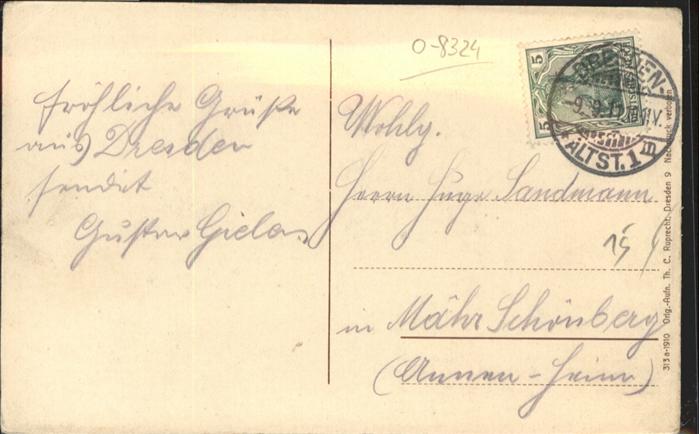 O-8324
fröhliche Grüße
aus Dresden
sendet
Gustav Giela
Wohlg.
Herrn Hugo Sandmann
15
in Mähr Schönberg
(Annen-Heim)
5
5
DRESDEN-
-9.9.
V.
*ALTST.1m
313 a-1910 Orig.-Aufn. Th. C. Ruprecht, Dresden 9 Nachdruck verboten